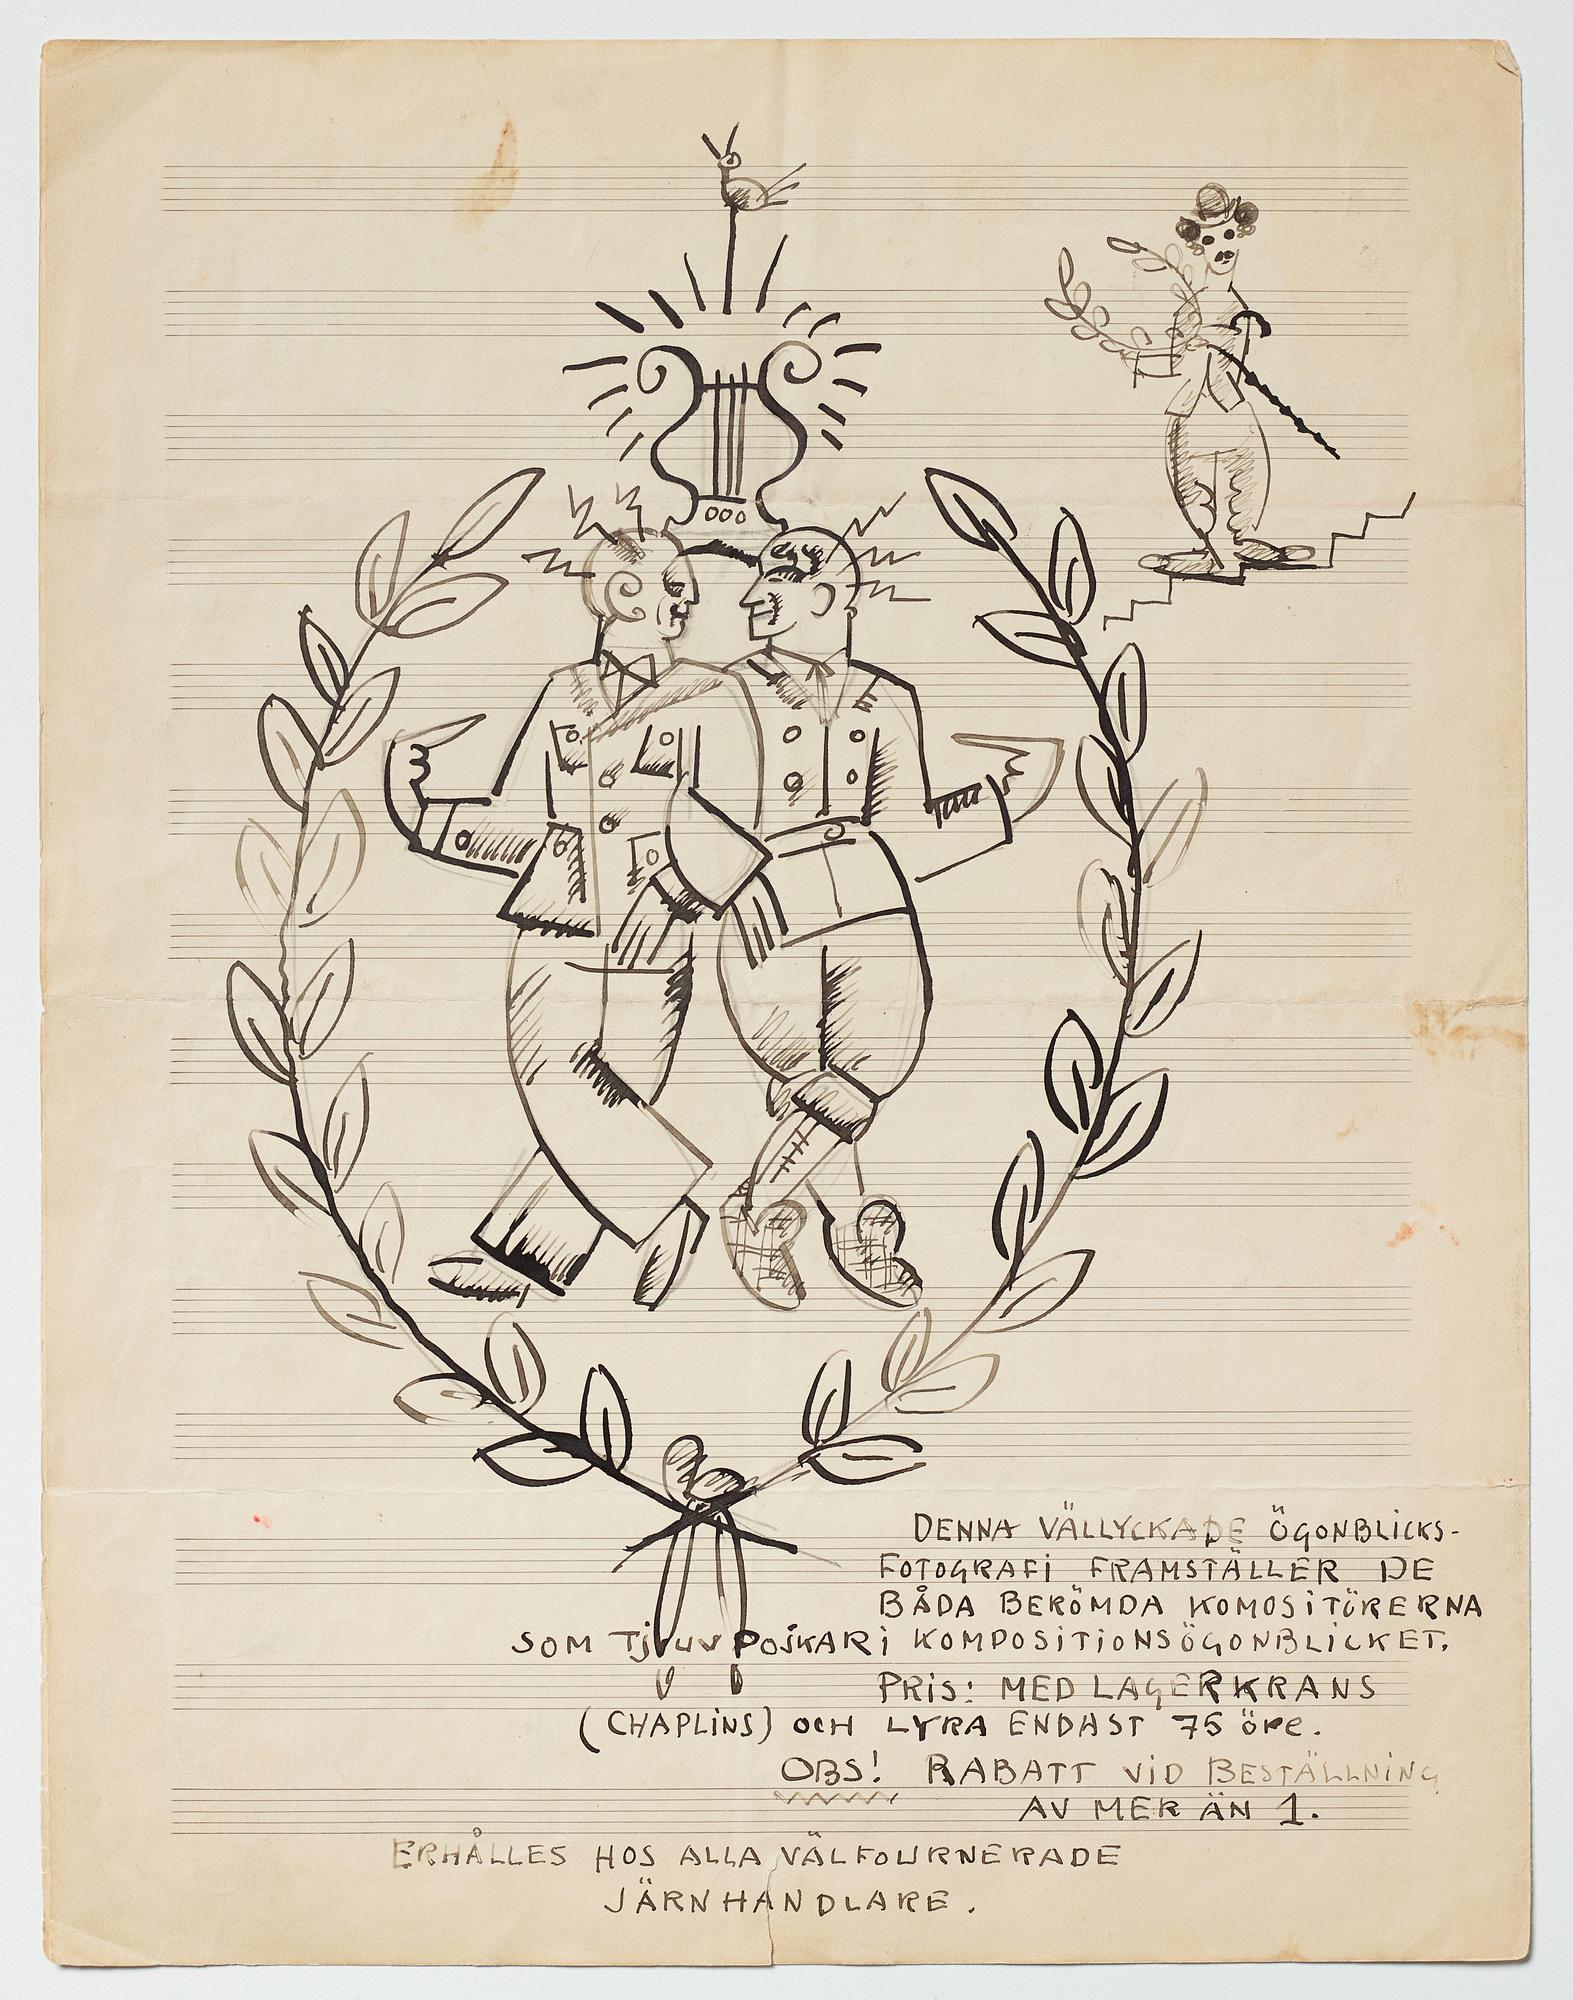 DENNA VÄLLYCKADE ÖGONBLICKS-
FOTOGRAFI FRAMSTÄLLER DE
BÅDA BERÖMDA KOMOSITÖRERNA
SOM TJUV POJKAR I KOMPOSITIONSÖGONBLICKET.
PRIS: MED LAGERKRANS
(CHAPLINS) OCH LYRA ENDAST 75 öre.
OBS! RABATT VID BESTÄLLNING
AV MER ÄN 1.
ERHÅLLES HOS ALLA VÄLFOURNERADE
JÄRNHANDLARE.